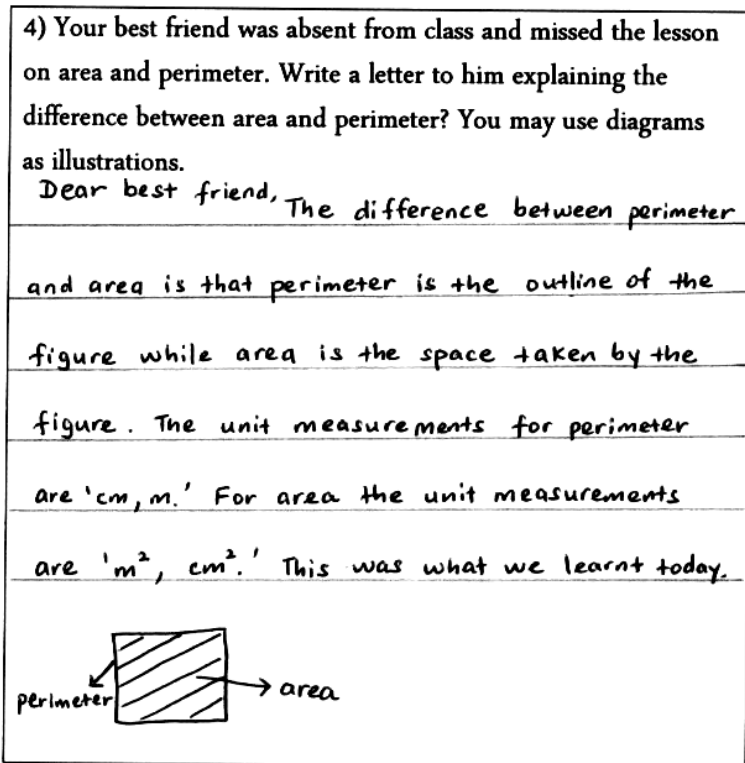 4) Your best friend was absent from class and missed the lesson
on area and perimeter. Write a letter to him explaining the
difference between area and perimeter? You may use diagrams
as illustrations.
Dear best friend,
The difference between perimeter
and area is that perimeter is the outline of the
figure while area is the space taken by the
figure. The unit measurements for perimeter
are 'cm, m.' For area the unit measurements
are 'm², cm².' This was what we learnt today.
perimeter
area